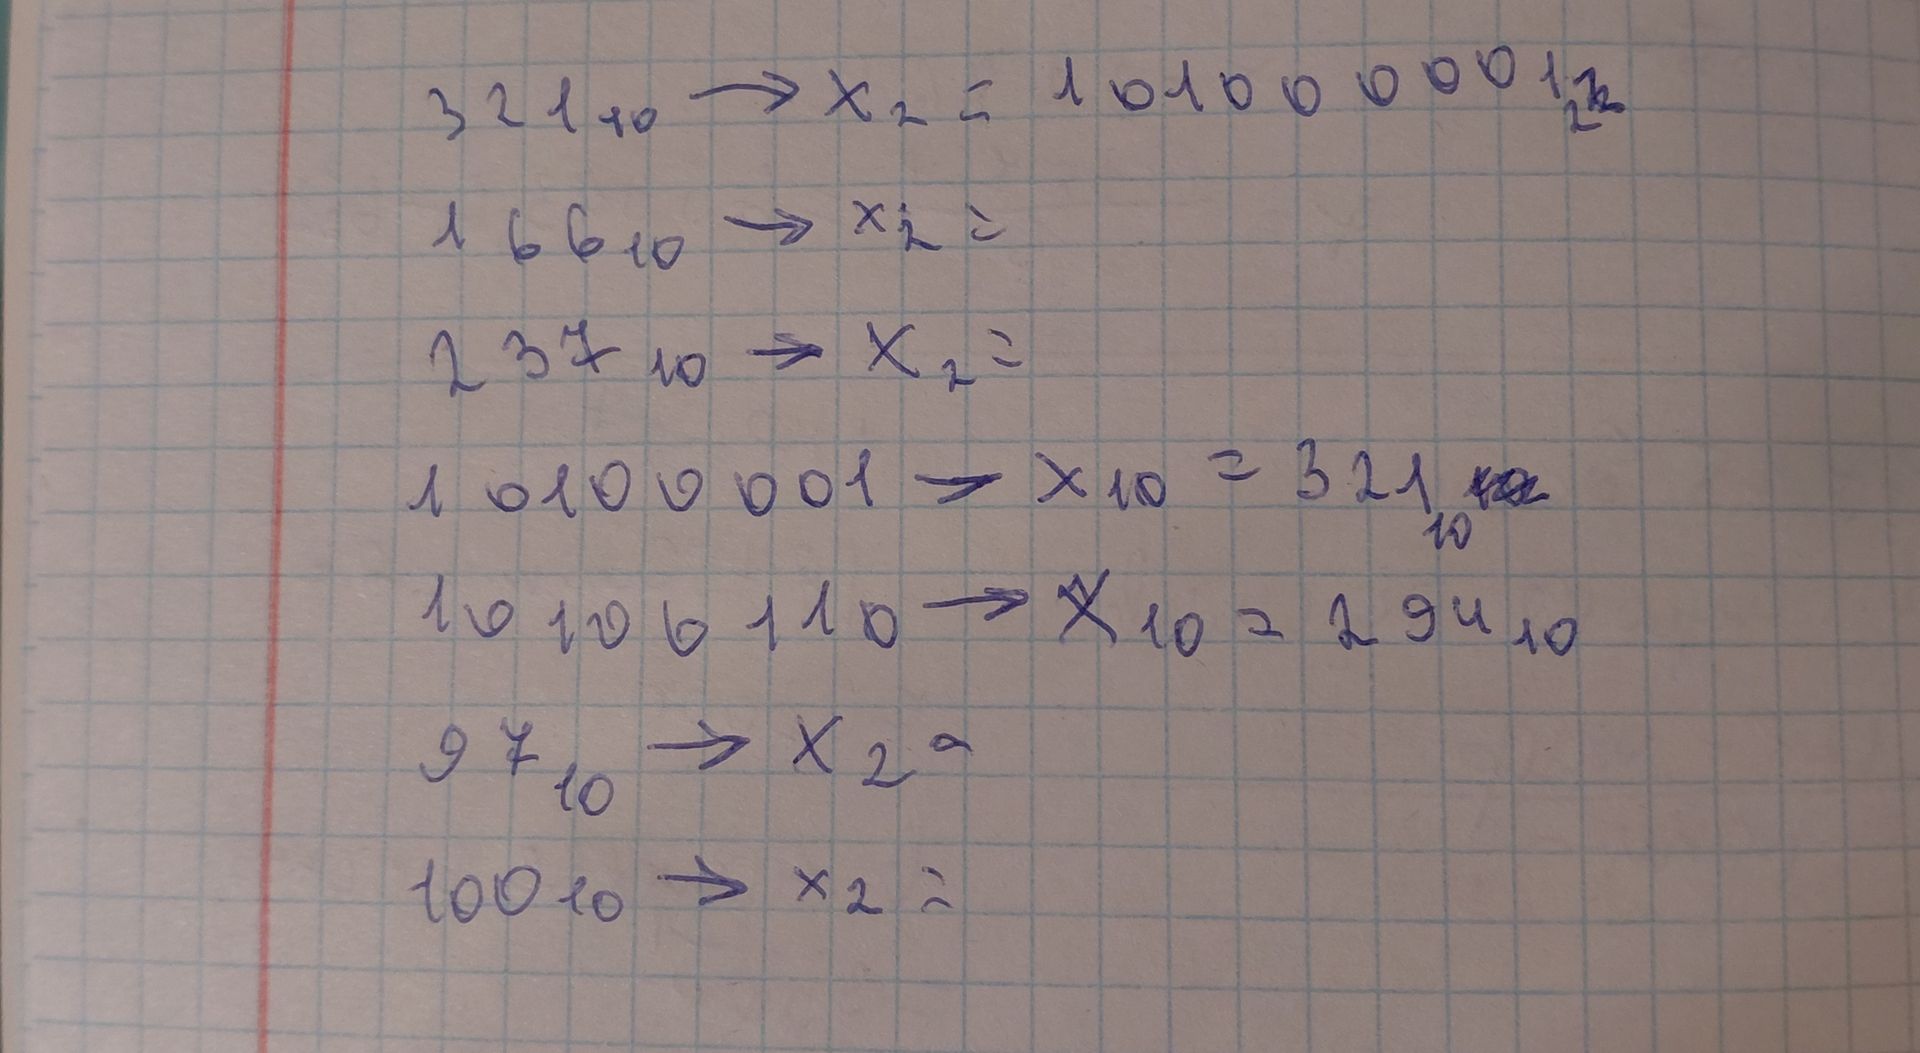 321₁₀ → x₂ = 101000001₂
166₁₀ → x₂ =
237₁₀ → x₂ =
10100001 → x₁₀ = 321₁₀
10100110 → x₁₀ = 294₁₀
97₁₀ → x₂ =
100₁₀ → x₂ =